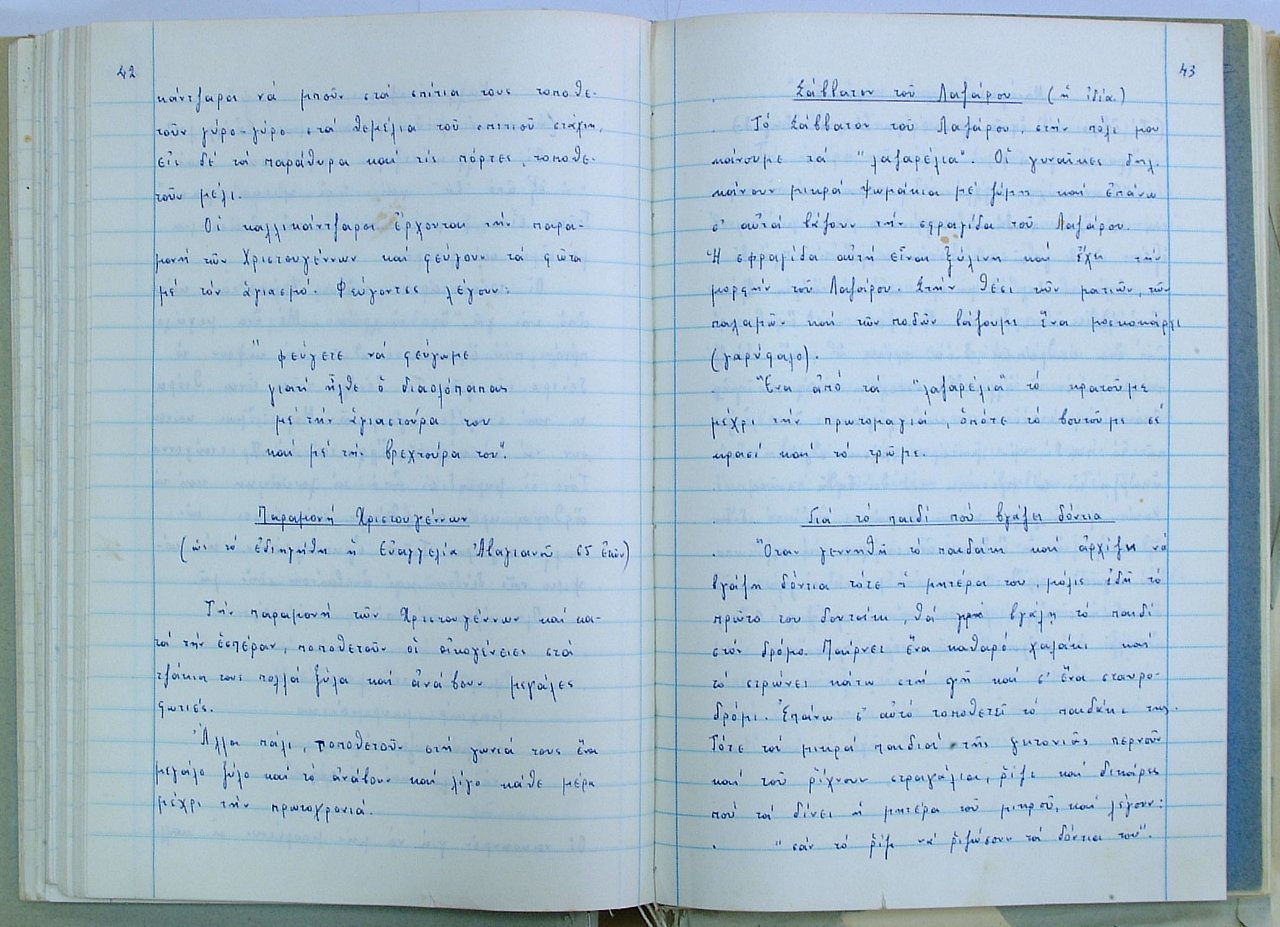 42
κάντζαροι νά μποῦν στά σπίτια τους τοποθε-
τοῦν γύρο-γύρο στά θεμέλια τοῦ σπιτιοῦ στάχτη,
εἰς δέ τά παράθυρα καί τίς πόρτες, τοποθε-
τοῦν μέλι.
Οἱ καλλικάντζαροι ἔρχονται τήν παρα-
μονή τῶν Χριστουγέννων καί φεύγουν τά φῶτα
μέ τόν ἁγιασμό. Φεύγοντες λέγουν:
"φεύγετε νά φεύγωμε
γιατί ἦλθε ὁ διαολόπαπας
με τήν ἁγιαστούρα του
καί μέ τήν βρεχτούρα του".
Παραμονή Χριστουγέννων
(ὡς τό ἐδιηγήθη ἡ Εὐαγγελία 65 ἐτῶν)
Τήν παραμονή τῶν Χριστουγέννων καί κα-
τά τήν ἑσπέραν, τοποθετοῦν οἱ οἰκογένειες στά
τζάκια τους πολλά ξύλα καί ἀνάβουν μεγάλες
φωτιές.
Ἄλλοι πάλι, τοποθετοῦν στή γωνιά τους ἕνα
μεγάλο ξύλο καί τό ἀνάβουν καί λίγο κάθε μέρα
μέχρι τήν πρωτοχρονιά.
43
Σάββατον τοῦ Λαζάρου (ἡ ἰδία)
Τό Σάββατον τοῦ Λαζάρου, στήν πόλι μου
κάνουμε τά "λαζαρέλια". Οἱ γυναῖκες δηλ.
κάνουν μικρά ψωμάκια μέ ζύμη καί ἐπάνω
σ' αὐτά βάζουν τήν σφραγίδα τοῦ Λαζάρου.
Ἡ σφραγίδα αὐτή εἶναι ξύλινη καί ἔχει τήν
μορφήν τοῦ Λαζάρου. Στήν θέσι τῶν ματιῶν, τῶν
παλαμῶν καί τῶν ποδῶν βάζουμε ἕνα μοσκοκάρφι
(γαρύφαλο).
Ἕνα ἀπό τά "λαζαρέλια" τό κρατοῦμε
μέχρι τήν πρωτομαγιά, ὁπότε τό βουτοῦμε σέ
κρασί καί τό τρῶμε.
Γιά τό παιδί πού βγάζει δόντια
Ὅταν γεννηθῆ τό παιδάκι καί ἀρχίζη νά
βγάζη δόντια τότε ἡ μητέρα του, μόλις ἰδῆ τό
πρῶτο του δοντάκι, θά βγάλη τό παιδί
στόν δρόμο. Παίρνει ἕνα καθαρό χαλάκι καί
τό στρώνει κάτω στή γῆ καί σ' ἕνα σταυρο-
δρόμι. Ἐπάνω σ' αὐτό τοποθετεῖ τό παιδάκι της.
Τότε τά μικρά παιδιά τῆς γειτονιᾶς περνοῦν
καί τοῦ ρίχνουν στραγάλια, ρίζι καί δεκάρες
πού τά δίνει ἡ μητέρα τοῦ μικροῦ, καί λέγουν:
"σάν τό ρίζι νά ριζώσουν τά δόντια του".